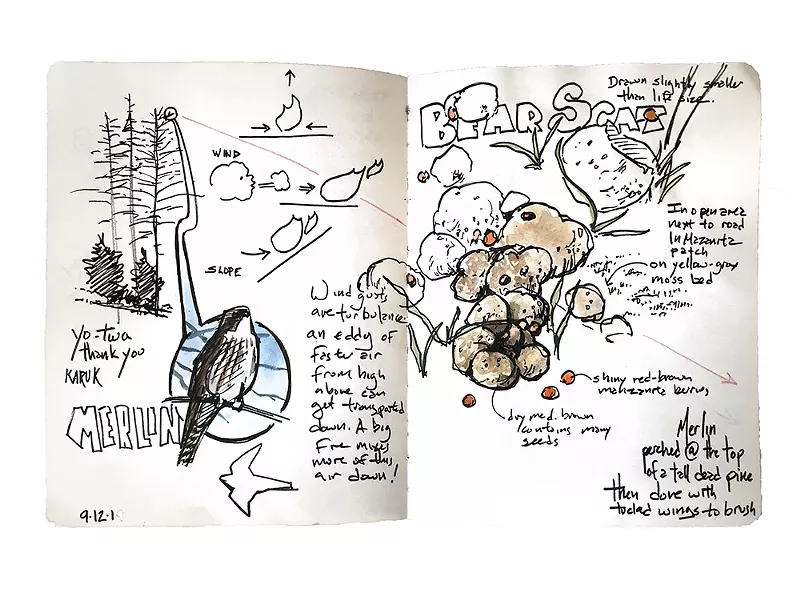 WIND
SLOPE
Yo-twa
thank you
KARUK
MERLIN
9.12.1
Wind gusts
are turbulance
an eddy of
faster air
from high
above can
get transported
down. A big
fire mixes
more of this
air down!
BEAR SCAT
Drawn slightly smaller
than life size.
In open area
next to road
In Mazanita
patch
on yellow-gray
moss bed
shiny red-brown
manzanita berries
dry med. brown
contains many
seeds
Merlin
perched @ the top
of a tall dead pine
then dove with
tucked wings to brush